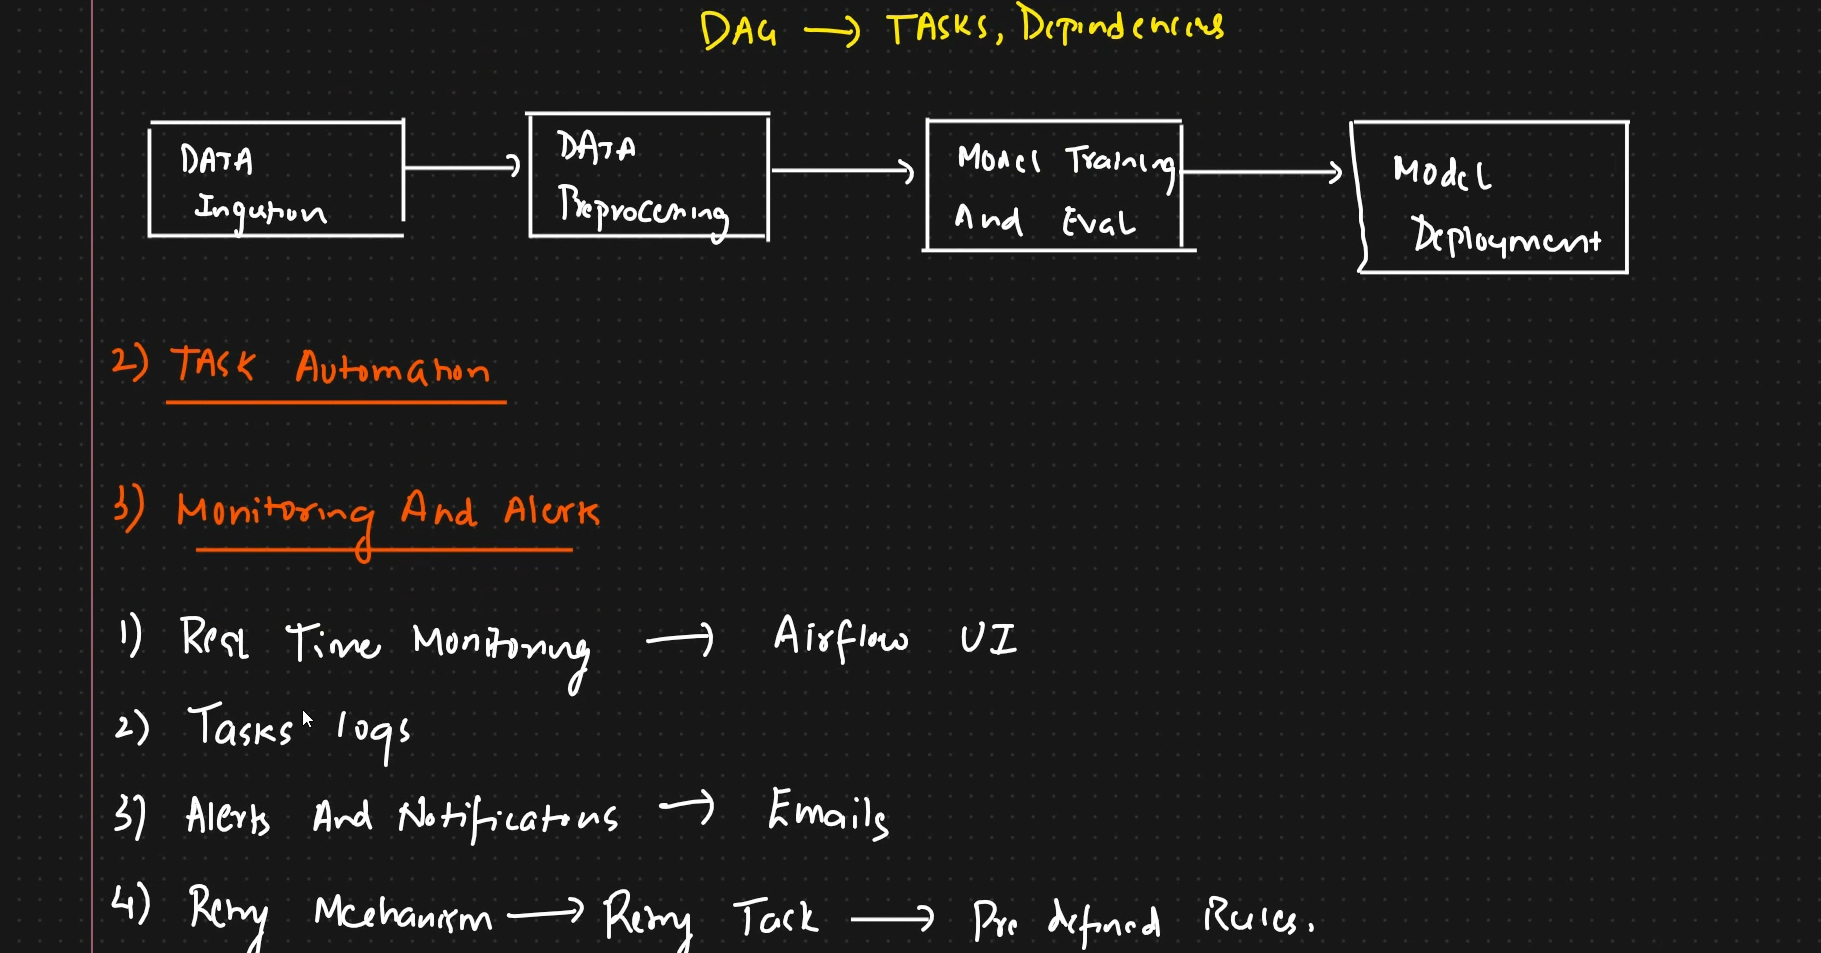 DAG → TASKS, Dependencies
DATA
Ingestion
DATA
Preprocessing
Model Training
And Eval
Model
Deployment
2) TASK Automation
3) Monitoring And Alerts
1) Real Time Monitoring → Airflow UI
2) Tasks logs
3) Alerts And Notifications → Emails
4) Retry Mechanism → Retry Task → Pre defined Rules.